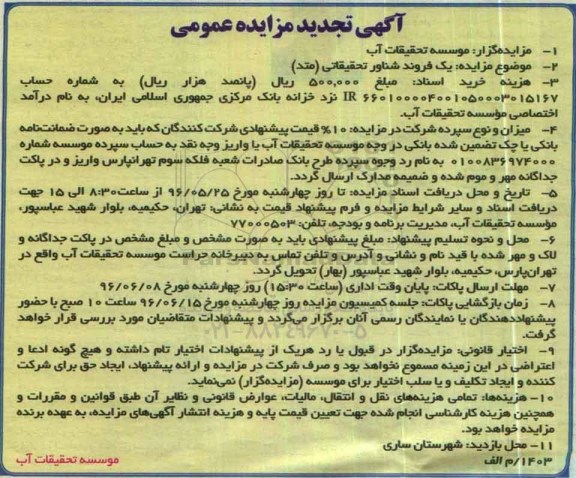 آگهی تجدید مزایده عمومی
۱- مزایده‌گزار: موسسه تحقیقات آب
۲- موضوع مزایده: یک فروند شناور تحقیقاتی (متد)
۳- هزینه خرید اسناد: مبلغ ۵۰۰,۰۰۰ ریال (پانصد هزار ریال) به شماره حساب
IR ۶۶۰۱۰۰۰۰۴۰۰۱۰۵۰۰۰۳۰۱۵۱۶۷ نزد خزانه بانک مرکزی جمهوری اسلامی ایران، به نام درآمد
اختصاصی مؤسسه تحقیقات آب.
۴- میزان و نوع سپرده شرکت در مزایده: ۱۰% قیمت پیشنهادی شرکت کنندگان که باید به صورت ضمانت‌نامه
بانکی یا چک تضمین شده بانکی در وجه موسسه تحقیقات آب یا واریز وجه نقد به حساب سپرده موسسه شماره
۰۱۰۰۸۳۶۹۷۴۰۰۰ به نام رد وجوه سپرده طرح بانک صادرات شعبه فلکه سوم تهرانپارس واریز و در پاکت
جداگانه مهر و موم شده و ضمیمه مدارک ارسال گردد.
۵- تاریخ و محل دریافت اسناد مزایده: تا روز چهارشنبه مورخ ۹۶/۰۵/۲۵ از ساعت ۸:۳۰ الی ۱۵ جهت
دریافت اسناد و سایر شرایط مزایده و فرم پیشنهاد قیمت به نشانی: تهران، حکیمیه، بلوار شهید عباسپور،
مؤسسه تحقیقات آب، مدیریت برنامه و بودجه، تلفن: ۷۷۰۰۰۵۰۳
۶- محل و نحوه تسلیم پیشنهاد: مبلغ پیشنهادی باید به صورت مشخص و مبلغ مشخص در پاکت جداگانه و
لاک و مهر شده با قید نام و نشانی و آدرس و تلفن تماس به دبیرخانه حراست موسسه تحقیقات آب واقع در
تهران‌پارس، حکیمیه، بلوار شهید عباسپور (بهار) تحویل گردد.
۷- مهلت ارسال پاکات: پایان وقت اداری (ساعت ۱۵:۳۰) روز چهارشنبه مورخ ۹۶/۰۶/۰۸
۸- زمان بازگشایی پاکات: جلسه کمیسیون مزایده روز چهارشنبه مورخ ۹۶/۰۶/۱۵ ساعت ۱۰ صبح با حضور
پیشنهاددهندگان یا نمایندگان رسمی آنان برگزار می‌گردد و پیشنهادات متقاضیان مورد بررسی قرار خواهد
گرفت.
۹- اختیار قانونی: مزایده‌گزار در قبول یا رد هریک از پیشنهادات اختیار تام داشته و هیچ گونه ادعا و
اعتراضی در این زمینه مسموع نخواهد بود و صرف شرکت در مزایده و ارائه پیشنهاد، ایجاد حق برای شرکت
کننده و ایجاد تکلیف و یا سلب اختیار برای موسسه (مزایده‌گزار) نمی‌نماید.
۱۰- هزینه‌ها: تمامی هزینه‌های نقل و انتقال، مالیات، عوارض قانونی و نظایر آن طبق قوانین و مقررات و
همچنین هزینه کارشناسی انجام شده جهت تعیین قیمت پایه و هزینه انتشار آگهی‌های مزایده، به عهده برنده
مزایده خواهد بود.
۱۱- محل بازدید: شهرستان ساری
۱۴۰۳/م الف
موسسه تحقیقات آب